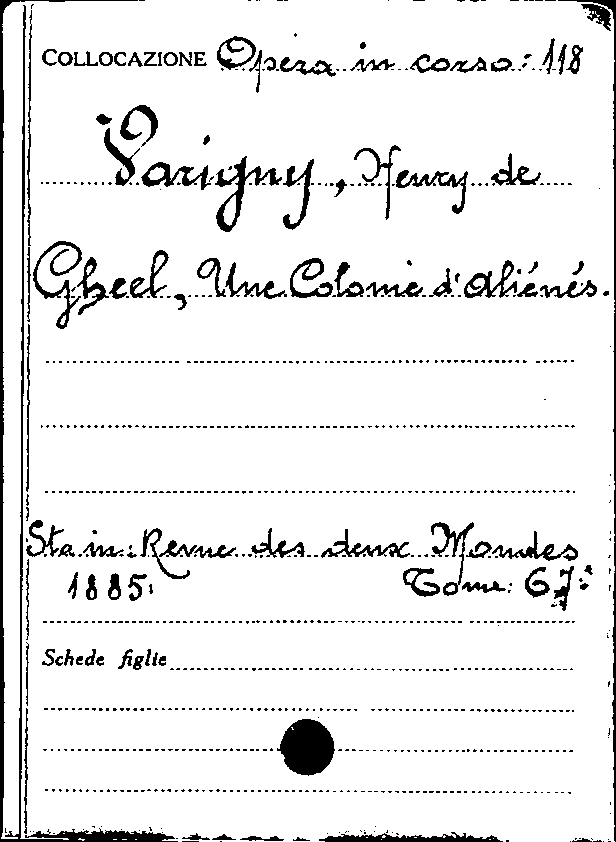 COLLOCAZIONE Opera in corso: 118
Varigny, Henry de
Gheel, Une Colonie d'Aliénés.
Sta in: Revue des deux Mondes
1885. Tome: 67°
Schede figlie